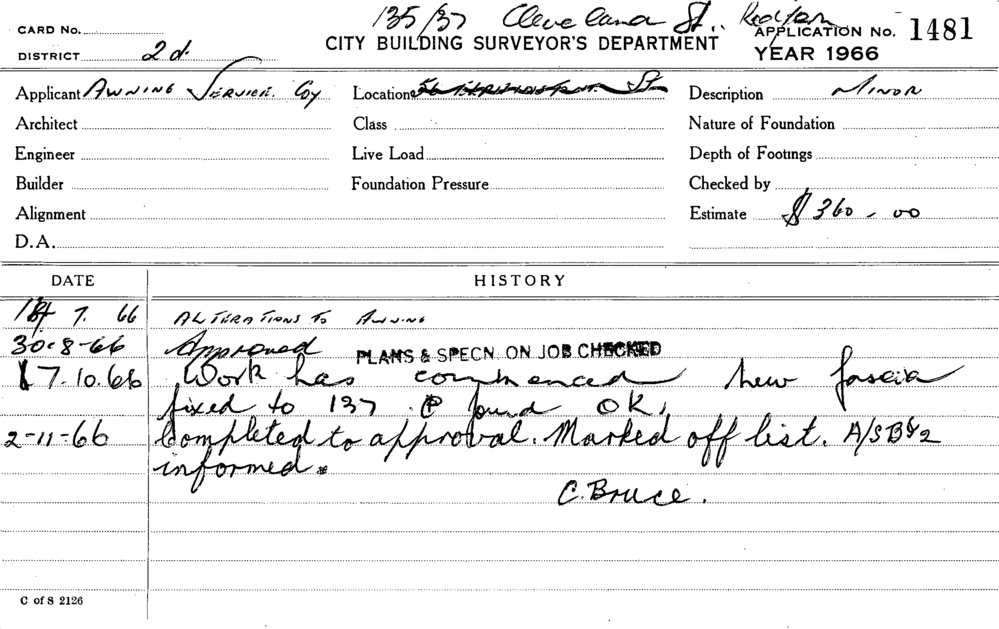 135/37 Cleveland St. Redfern
CARD No. APPLICATION No. 1481
CITY BUILDING SURVEYOR'S DEPARTMENT
DISTRICT 2d. YEAR 1966
Applicant AWNING SERVICE. Coy Location St Description MINOR
Architect Class Nature of Foundation
Engineer Live Load Depth of Footings
Builder Foundation Pressure Checked by
Alignment Estimate $360-00
D.A.
DATE HISTORY
7. 66 ALTERATIONS TO AWNING
30-8-66 Approved PLANS & SPECN. ON JOB CHECKED
17.10.66 Work has commenced new fascia
fixed to 137 found OK.
2-11-66 Completed to approval. Marked off list. A/SB&2
informed.
C. Bruce.
C of S 2126